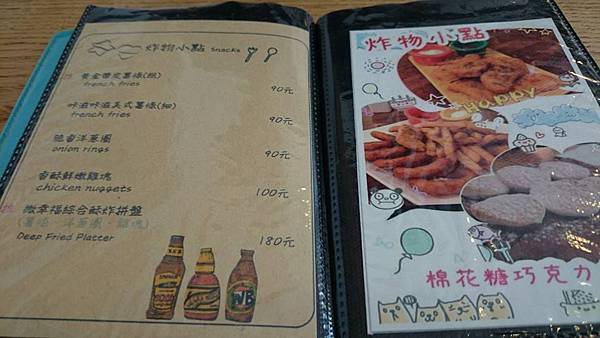 炸物小點 Snacks
黃金帶皮薯條(粗)
french fries
90元
咔滋咔滋美式薯條(細)
french fries
90元
脆香洋蔥圈
onion rings
90元
香酥鮮嫩雞塊
chicken nuggets
100元
微幸福綜合酥炸拼盤
(薯條、洋蔥圈、雞塊)
Deep Fried Platter
180元
WB
炸物小點
HAPPY
棉花糖巧克力